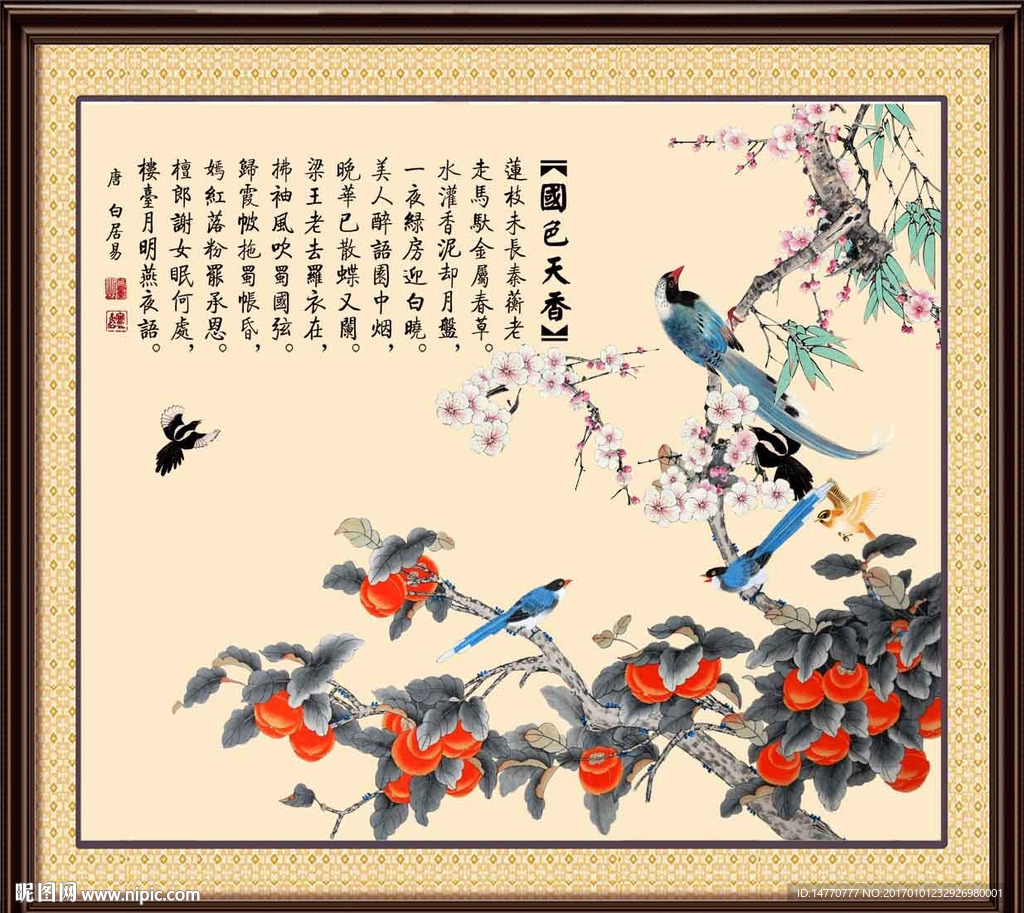 【國色天香】
蓮枝未長秦蘅老
走馬馱金屬春草。
水灌香泥却月盤，
一夜綠房迎白曉。
美人醉語園中烟，
晚華已散蝶又闌。
梁王老去羅衣在，
拂袖風吹蜀國弦。
歸霞帔拖蜀帳昏，
嫣紅落粉罷承恩。
檀郎謝女眠何處，
樓臺月明燕夜語。
唐 白居易
昵图网 www.nipic.com
ID:14770777 NO:20170101232926980001